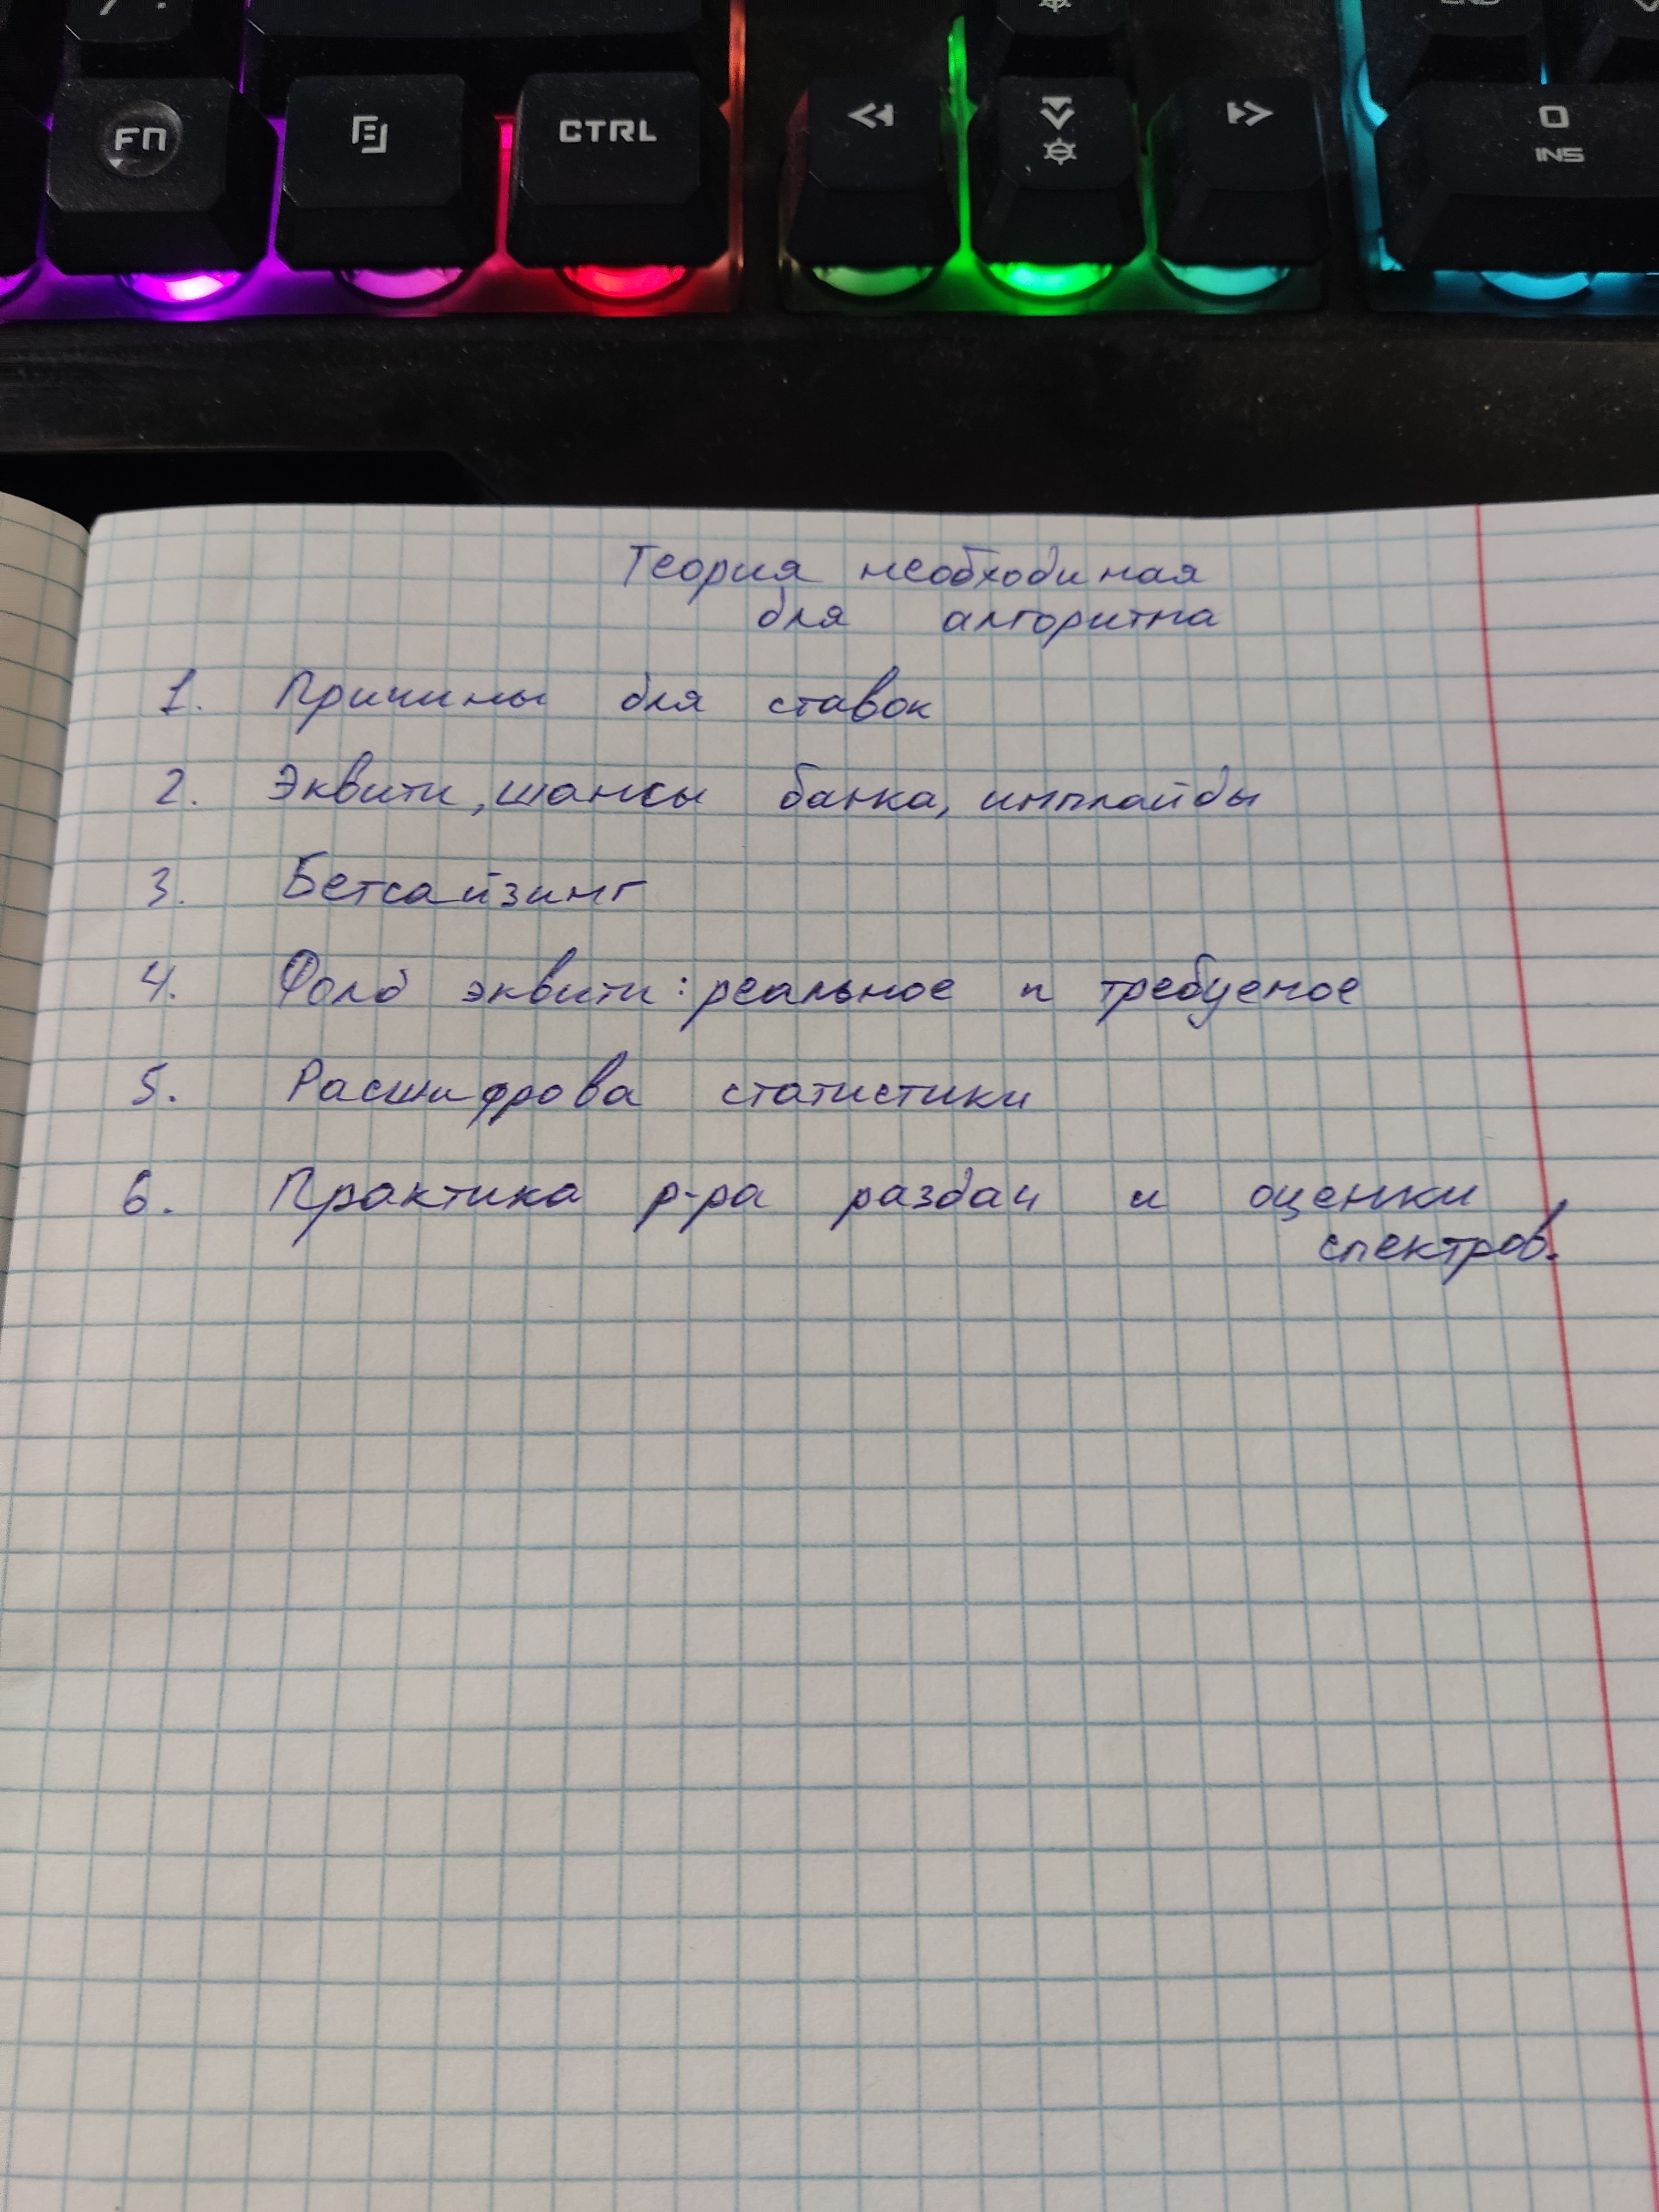 FN
CTRL
0
INS
Теория необходимая
для алгоритма
1. Причины для ставок
2. Эквити, шансы банка, имплайды
3. Бетсайзинг
4. Фолд эквити: реальное и требуемое
5. Расшифрова статистики
6. Практика р-ра раздач и оценки
спектров.